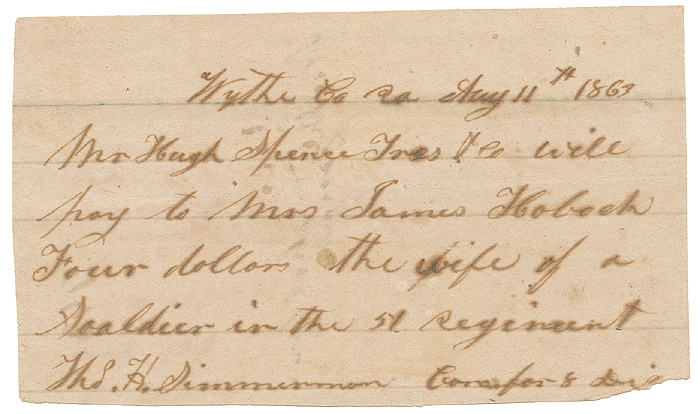 Wythe Co va Aug 11th 1863
Mr Hugh Spence Tres Co will
pay to Mrs James Hoboch
Four dollars the wife of a
Soaldier in the 51 Regiment
Thos. H. Simmermon Com for 8 Dis